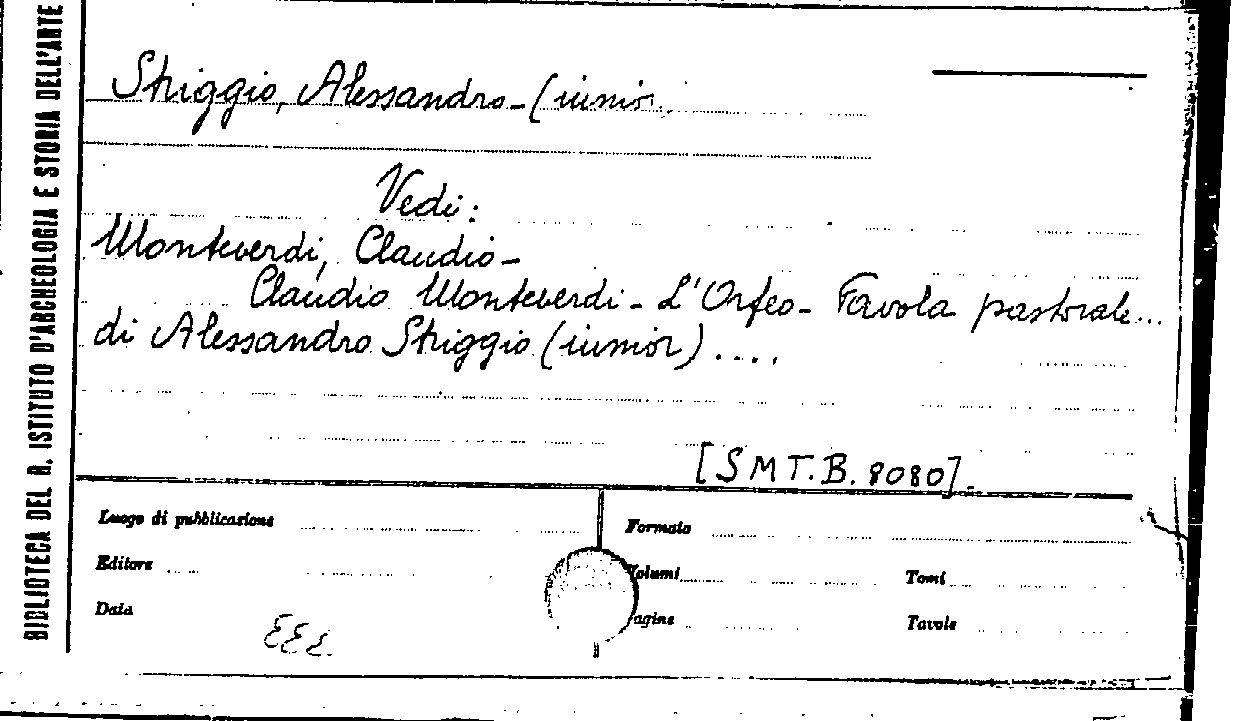 BIBLIOTECA DEL R. ISTITUTO D'ARCHEOLOGIA E STORIA DELL'ARTE
Striggio, Alessandro - (iunior.
Vedi:
Monteverdi, Claudio -
Claudio Monteverdi - L'Orfeo - Favola pastorale...
di Alessandro Striggio (iunior) ....
[SMT.B. 8080].
Luogo di pubblicazione
Formato
Editore
Volumi
Tomi
Data
agine
Tavole